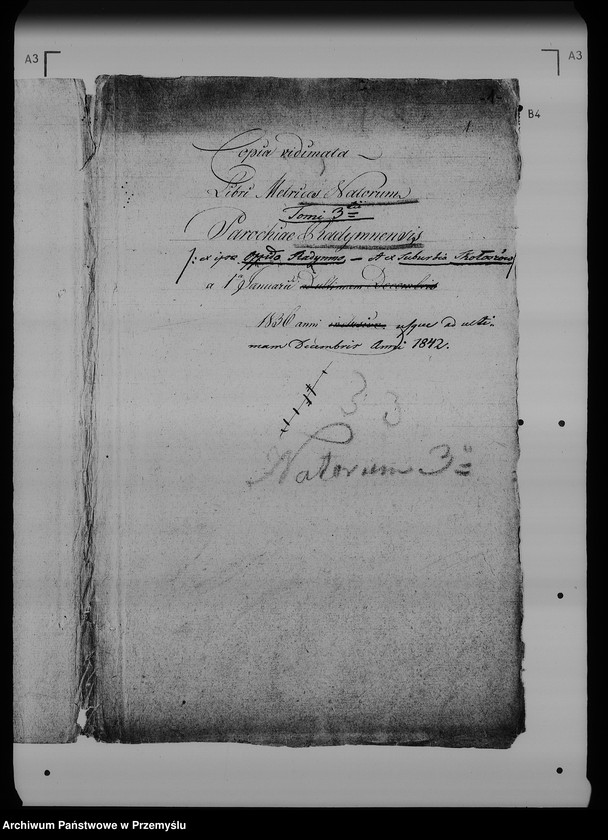 A3
A3
B4
1.
Copia vidimata
Libri Metrices Natorum
Tomi 3tii
Parochiae Radymnensis
/: ex ipso Oppido Radymno — et ex Suburbio Skołoszów /
a 1a Januarii ad ultimam Decembris
1836 anni inclusive usque ad ulti-
mam Decembris Anni 1842.
33
Natorum 3o
Archiwum Państwowe w Przemyślu